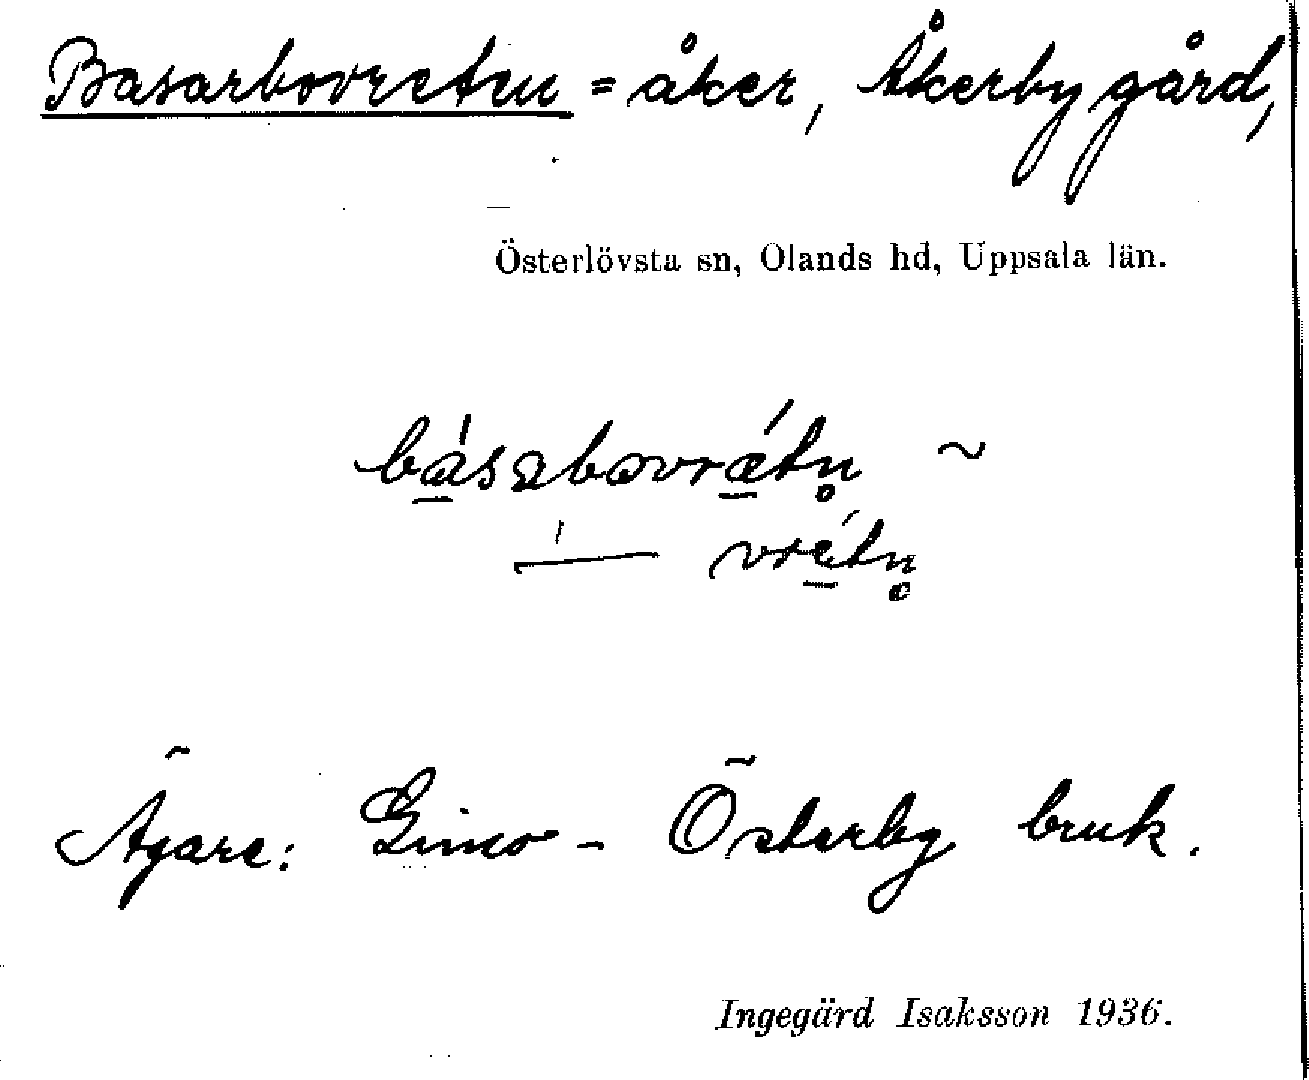 Basarbovreten = åker, Åkerby gård,
Österlövsta sn, Olands hd, Uppsala län.
básabovrǽtn̥ ~
— vrétn̥
Ägare: Gimo - Österby bruk.
Ingegärd Isaksson 1936.